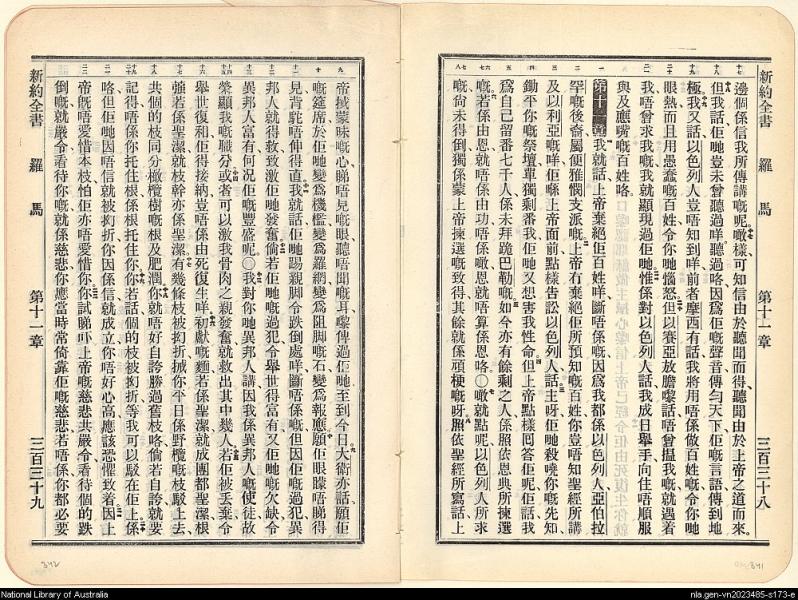 新約全書 羅馬 第十一章 三百三十八
邊個係信我所傳講嘅呢、噉樣可知信由於聽聞而得、聽聞由於上帝之道而來。
但我話佢哋豈未曾聽過咩、聽過咯、因爲佢嘅聲音傳勻天下、佢嘅言語傳到地
極、我又話以色列人豈唔知到咩、前者摩西有話、我將用唔係做百姓嘅、令你哋
眼熱、而且用愚蠢嘅百姓、令你哋惱怒、但以賽亞放膽嚟話、唔曾搵我嘅就遇着
我、唔曾求我嘅、我就顯現過佢哋、惟係對以色列人話、我成日舉手向住唔順服
與及應嘴嘅百姓咯。
第十一章 我就話、上帝棄絕佢百姓咩、斷唔係嘅、因爲我都係以色列人、亞伯拉
罕嘅後裔、屬便雅憫支派嘅、上帝冇棄絕佢所預知嘅百姓、你豈唔知聖經所講
及以利亞嘅咩、佢喺上帝面前點樣告訟以色列人話、主呀、佢哋殺嘵你嘅先知、
鋤平你嘅祭壇、單獨剩番我、佢哋又想害我性命、但上帝點樣囘答佢呢、佢話、我
爲自己留番七千人、係未拜跪巴勒嘅、如今亦有餘剩之人、係照依恩典所揀選
嘅、若係由恩、就唔係由功、唔係噉、恩就唔算係恩咯〇噉就點呢、以色列人所求
嘅、尙未得倒、獨係蒙上帝揀選嘅致得、其餘就係頑梗嘅呀、照依聖經所寫話、上
帝㨂蒙昧嘅心、睇唔見嘅眼、聽唔聞嘅耳、嚟傳過佢哋、至到今日、大衛亦話、願佢
嘅筵席、於佢哋變爲機檻、變爲羅網、變爲阻脚嘅石、變爲報應、願佢眼矇唔睇得
見、背駝唔伸得直、我就話、佢哋踢親脚、令跌倒處咩、斷唔係嘅、但因佢嘅過犯、異
邦人就得救、致激佢哋發奮、倘若佢哋嘅過犯、令舉世得富有、又佢哋嘅欠缺、令
異邦人富有、何况佢嘅豐盛呢〇我對你哋異邦人講、因我係異邦人嘅使徒、故
榮顯我嘅職分、或者可以激我骨肉之親發奮、就救出其中幾人、若佢被丟棄、令
舉世復和、佢得接納、豈唔係由死復生咩、初獻嘅麵若係聖潔、就成團都聖潔、根
若係聖潔、就枝幹亦係聖潔、有幾條枝被拗折、搣你平日係野欖嘅枝、駁上去、
共個的枝同分橄欖樹嘅根及肥潤、你就唔好自誇勝過舊枝咯、倘若自誇、就要
記得唔係你托住根、係根托住你、你若話、個的枝被拗折、等我可以駁在佢上、係
咯、但佢哋因唔信、就被拗折、你因係信、就成立、你唔好心高、應該恐懼致着、因上
帝旣唔愛惜本枝、怕佢亦唔愛惜你、你試睇吓上帝嘅慈悲共嚴令、看待個的跌
倒嘅就嚴令、看待你嘅就係慈悲、你應當時常倚靠佢嘅慈悲、若唔係、你都必要
新約全書 羅馬 第十一章 三百三十九
342
341
National Library of Australia
nla.gen-vn2023485-s173-e